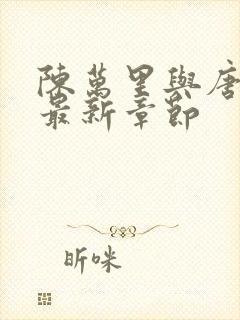 陳萬里與唐
最新章節
昕咪